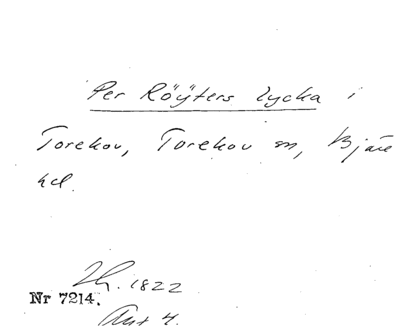 Per Röÿters lycka i
Torekov, Torekov sn, Bjäre
hd.
Lh. 1822
Nr 7214.
Akt 4.